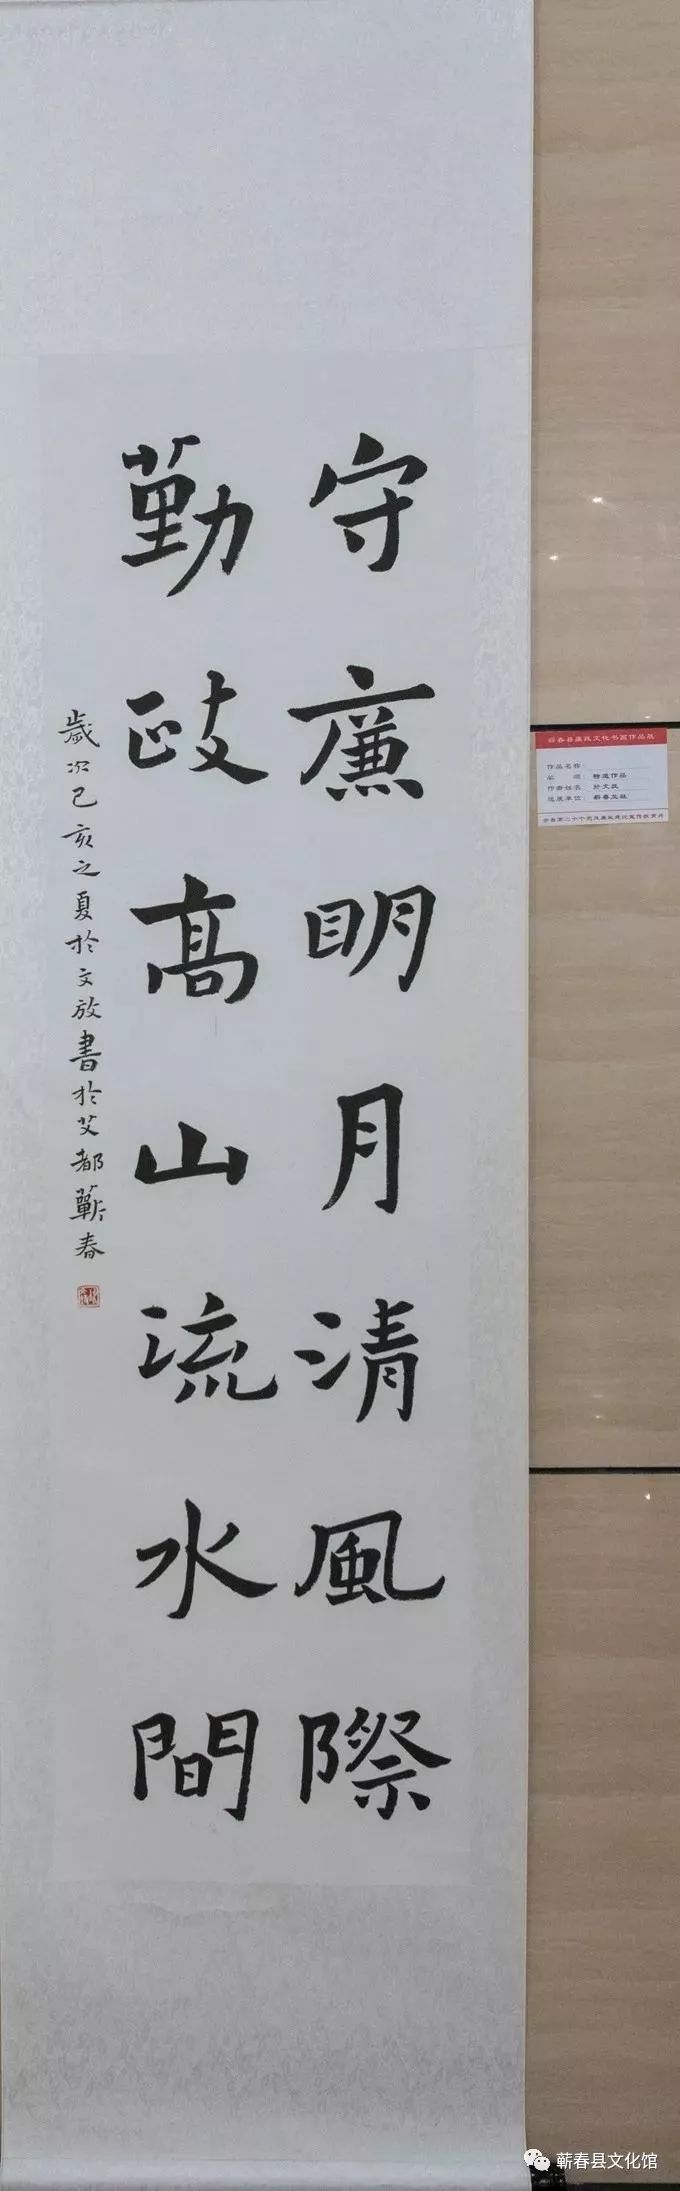 守廉明月清風際
勤政高山流水間
歲次己亥之夏於文放書於艾都蘄春
蕲春县廉政文化书画作品展
作品名称:
类 项: 特邀作品
作者姓名:
选展单位:
蕲春县文化馆